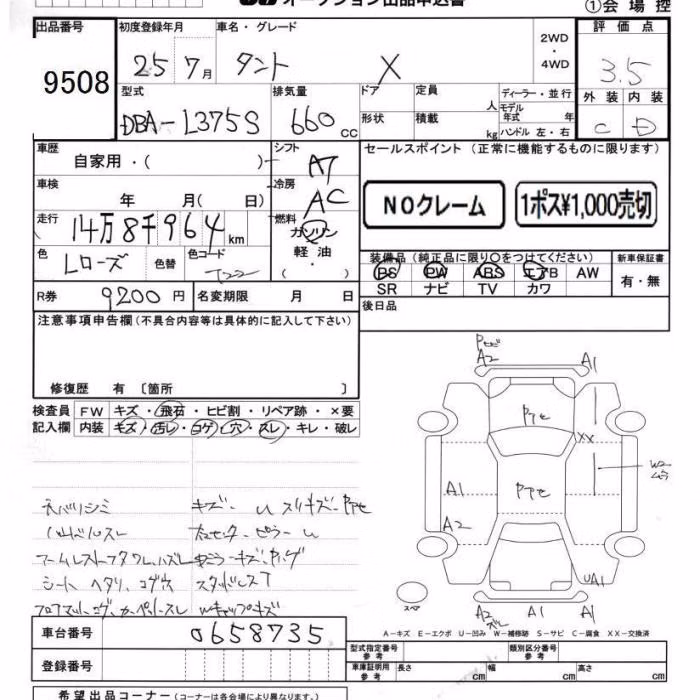 オークション出品申込書
①会場控
出品番号 初度登録年月 車名・グレード 2WD ・ 4WD 評価点
9508 25 7月 タント X 3.5
型式 排気量 ドア 定員 人 ディーラー・並行 外装 内装
DBA-L375S 660 cc 形状 積載 kg モデル年式 年 ハンドル 左・右 C D
車歴 自家用・( ) シフト AT セールスポイント(正常に機能するものに限ります)
車検 年 月(日) 冷房 AC NOクレーム 1ポス¥1,000売切
走行 14万8千964km 燃料 ガソリン 軽油 ・( )
色 Lローズ 色替 色コード T22 装備品(純正品に限り○をつけてください) 新車保証書
PS PW ABS エアB AW 有・無
SR ナビ TV カワ
R券 9200円 名変期限 月 日 後日品
注意事項申告欄(不具合内容等は具体的に記入して下さい)
修復歴 有〔箇所 〕
検査員 FW キズ・飛石・ヒビ割・リペア跡・×要
記入欄 内装 キズ・汚レ・コゲ・穴・スレ・キレ・破レ
A2 A1
Pアセ
XX
W2
A1 Pアセ
A2
UA1
スペア
A2 A1 A1
ネバリシミ キズ・U
シート ヘタリ、コゲ穴 スタッドレス
A-キズ E-エクボ U-凹み W-補修跡 S-サビ C-腐食 XX-交換済
車台番号 0658735
登録番号
型式指定番号 参考 類別区分番号 参考
車庫証明用 参考 長さ cm 幅 cm 高さ cm
希望出品コーナー(コーナーは各会場により異なります)